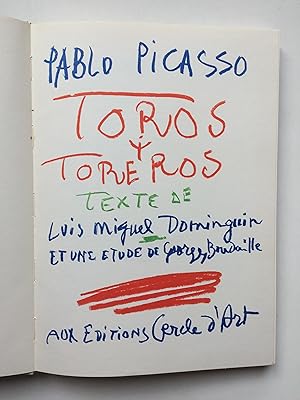 PABLO PICASSO
TOROS
Y
TOREROS
TEXTE DE
Luis Miguel Dominguin
ET UNE ETUDE DE Georges Boudaille
AUX EDITIONS Cercle d'Art